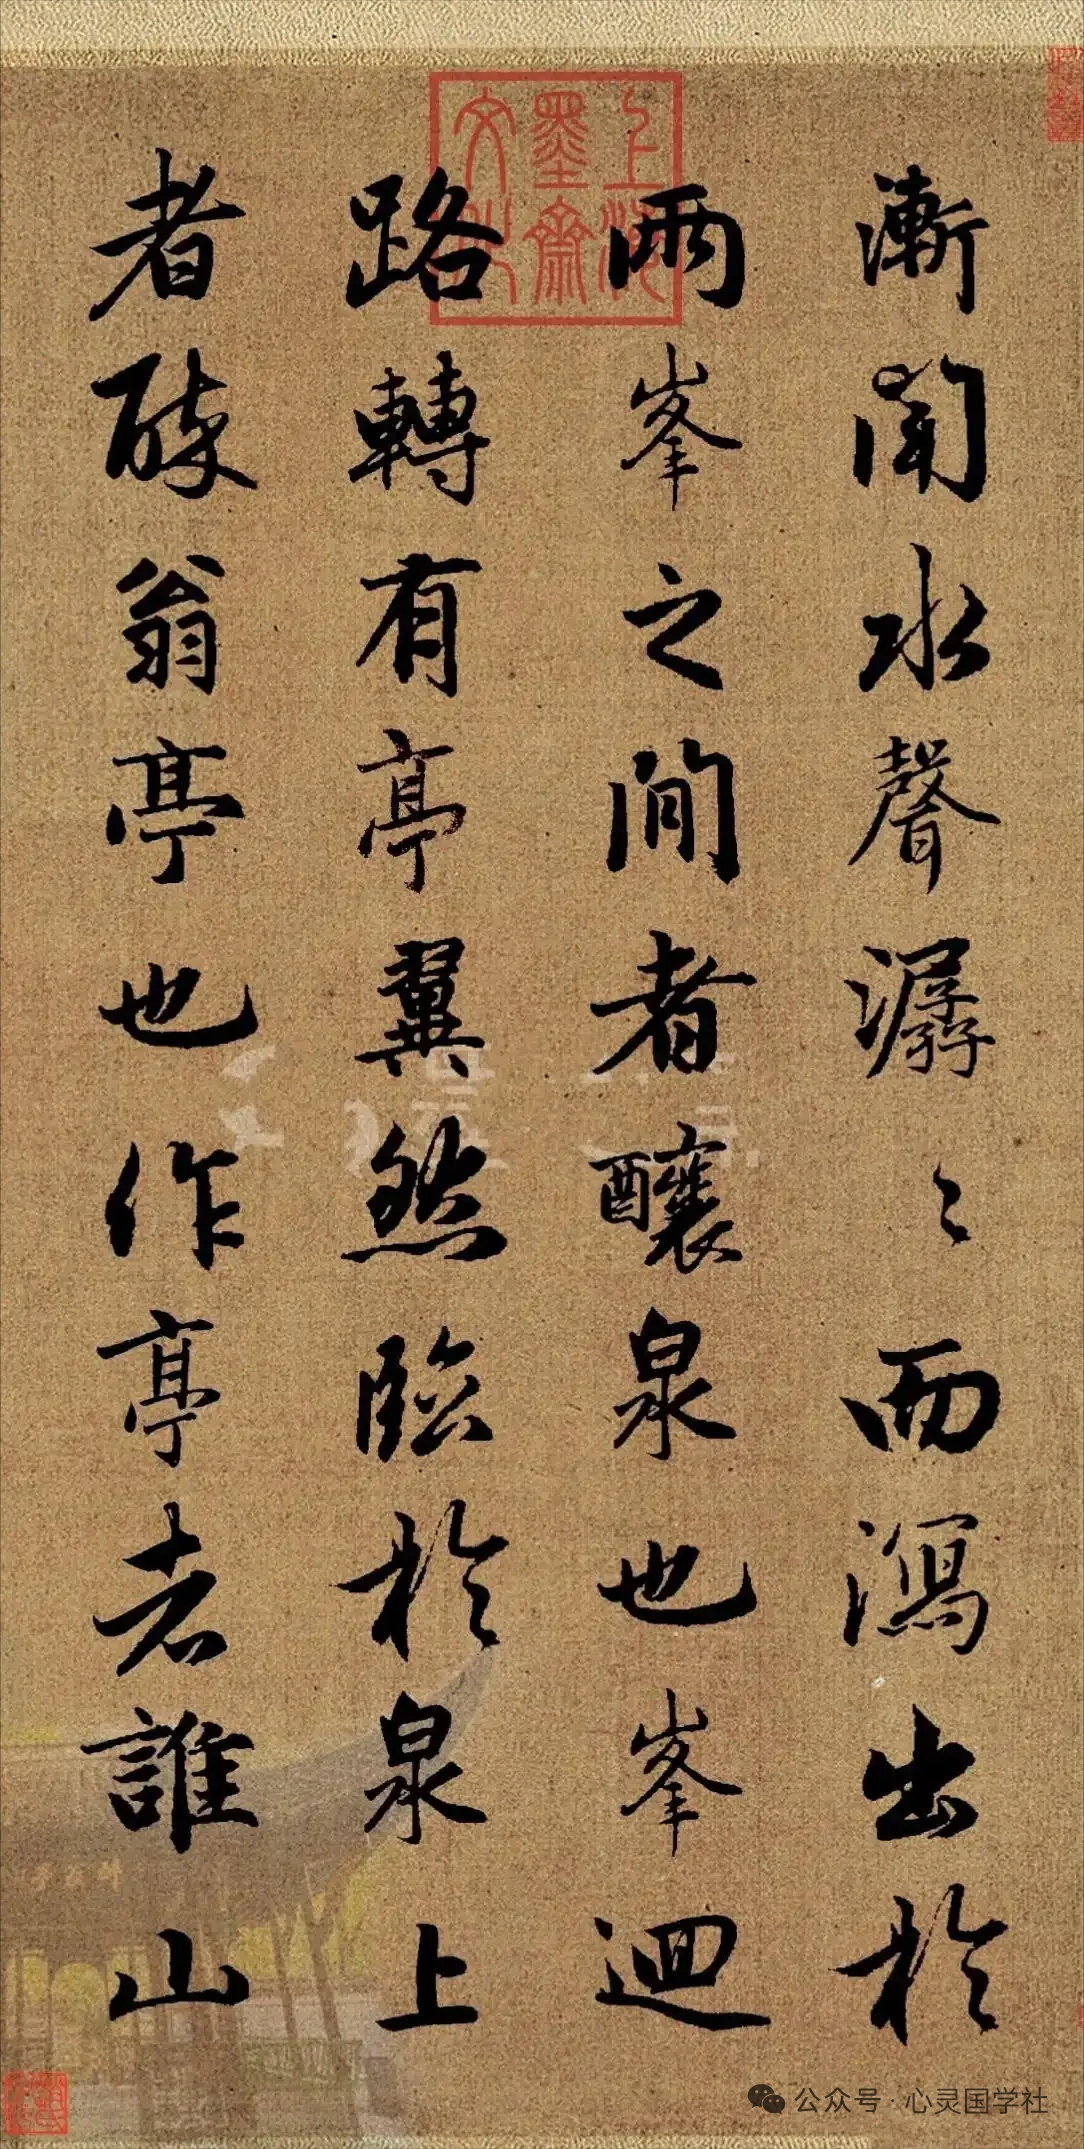 漸聞水聲潺〻而瀉出於
兩峯之間者釀泉也峯迴
路轉有亭翼然臨於泉上
者醉翁亭也作亭者誰山
公众号·心灵国学社